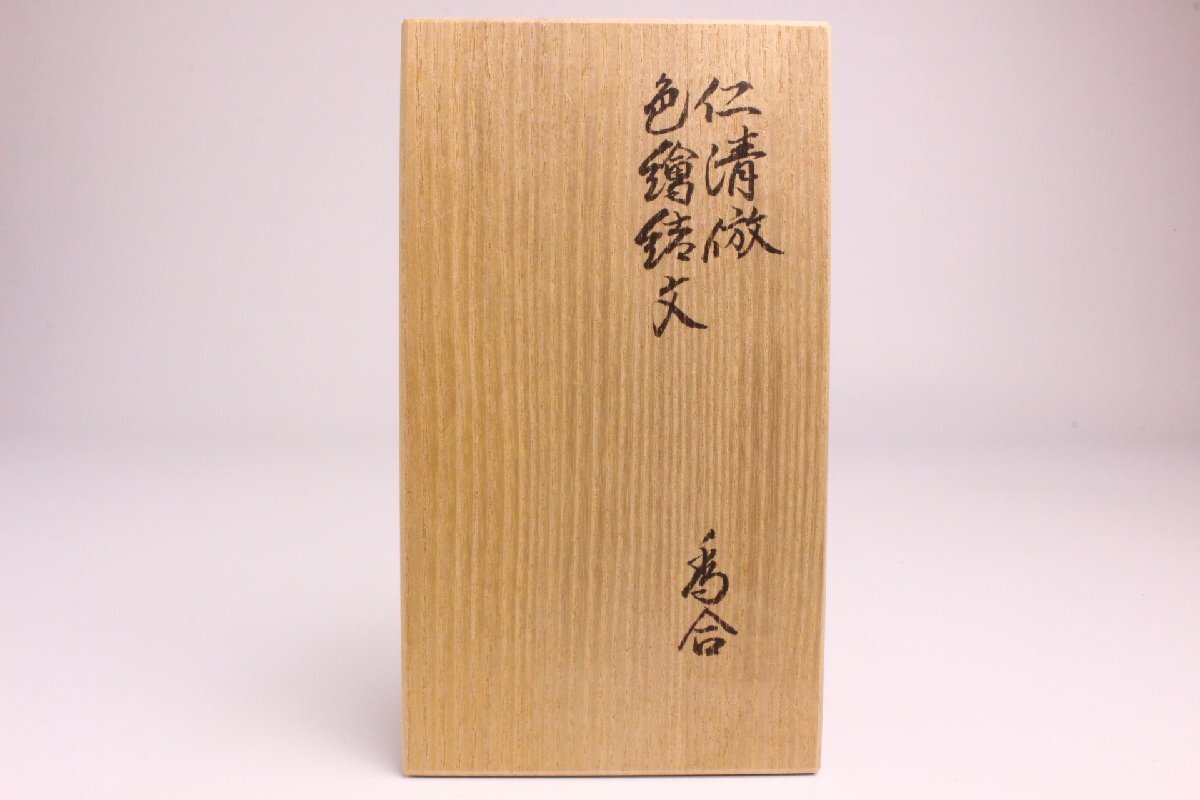 仁清倣
色繪結文
香合